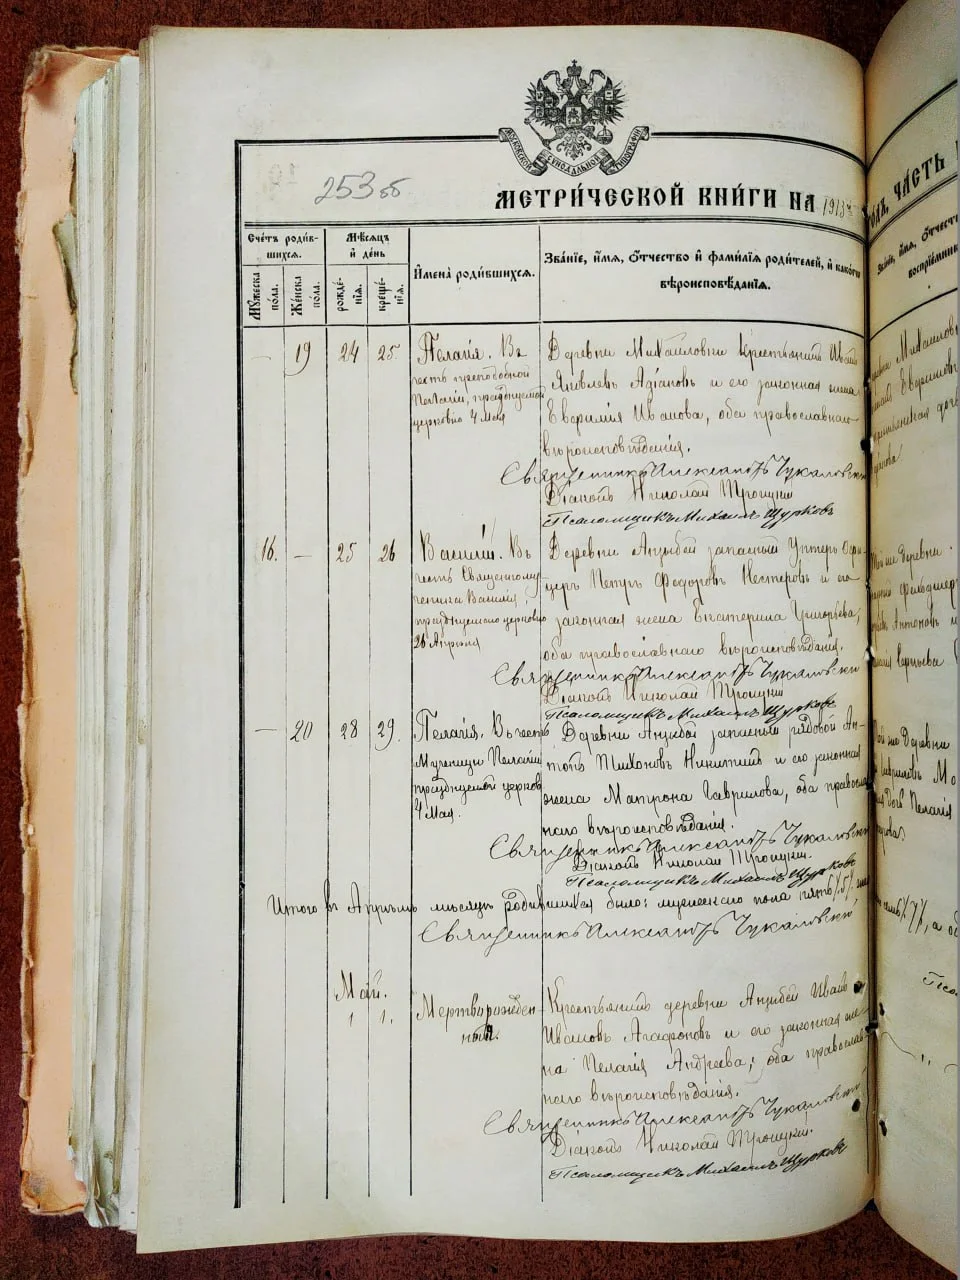 МОСКОВСКОЙ СѴНОДАЛЬНОЙ ТИПОГРАФІИ
253 об
МЕТРИ́ЧЕСКОЙ КНИ́ГИ НА 1913й
Сче́тъ роди́в-
шихся.
Мѣ́сяцъ
и҆ де́нь
И҆мена̀ роди́вшихся.
Зва́нїе, и҆́мя, ѻ҆́тчество и҆ фами́лїя роди́телей, и҆ како́гѡ
вѣроисповѣ́данїя.
Мꙋ́жеска по́ла.
Же́нска по́ла.
рожде́нїя.
креще́нїя.
— 19 24 25
Пелагія. Въ
честь преподобной
Пелагіи, празднуемой
церковію 4 мая
Деревни Михаиловки крестьянинъ
Яковлевъ Адіановъ и его законная жена
Иванова, оба православнаго
вѣроисповѣданія.
Священникъ Александръ Чукаловскій
Діаконъ Николай Троицкій
Псаломщикъ Михаилъ Щурковъ
16. — 25 26
Василій. Въ
честь Священному-
ченика Василія,
празднуемаго церковію
26 Апрѣля
Деревни Анцыбей запасный Унтеръ Офи-
церъ Петръ Федоровъ Нестеровъ и его
законная жена Екатерина Григорьева,
оба православнаго вѣроисповѣданія.
Священникъ Александръ Чукаловскій
Діаконъ Николай Троицкій
Псаломщикъ Михаилъ Щурковъ
— 20 28 29.
Пелагія. Въ честь
Мученицы Пелагіи
празднуемой церков
4 Мая.
Деревни Анцыбей запасный рядовой Ан-
тонъ Тихоновъ Никитинъ и его законная
жена Матрона Гаврилова, оба православ
наго вѣроисповѣданія.
Священникъ Александръ Чукаловскій
Діаконъ Николай Троицкій.
Псаломщикъ Михаилъ Щурковъ
Итого въ Апрѣлѣ мѣсяцѣ родившихся было: мужескаго пола пять /5/
Священникъ Александръ Чукаловскій
Май.
1 1.
Мертворожден
ный.
Крестьянинъ деревни Анцыбей Иванъ
Ивановъ Агафоновъ и его законная же
на Пелагія Андреева, оба православ-
наго вѣроисповѣданія.
Священникъ Александръ Чукаловскій
Діаконъ Николай Троицкій.
Псаломщикъ Михаилъ Щурковъ
ЧА́СТЬ